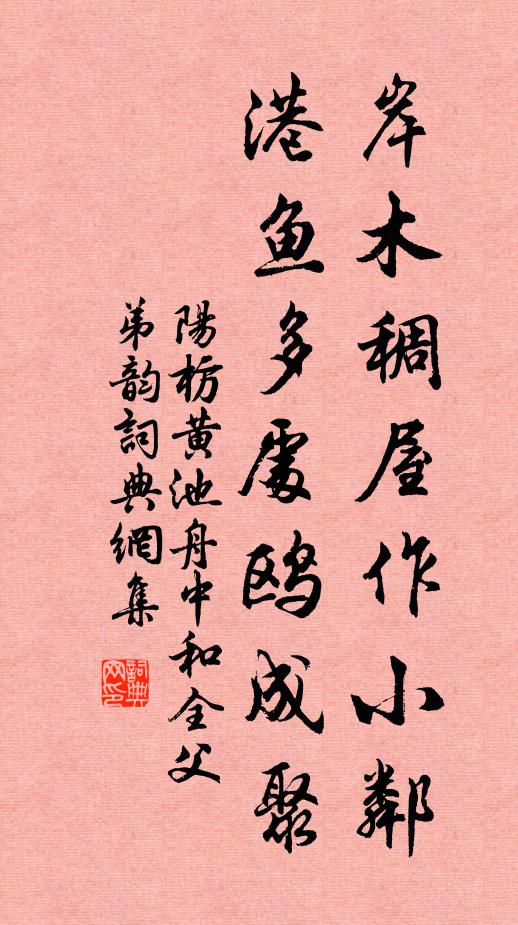 岸木稠屋作小鄰
港鱼多處鸥成聚
陽枋黄池舟中和全父
弟韵詞典網集
詞典
网印